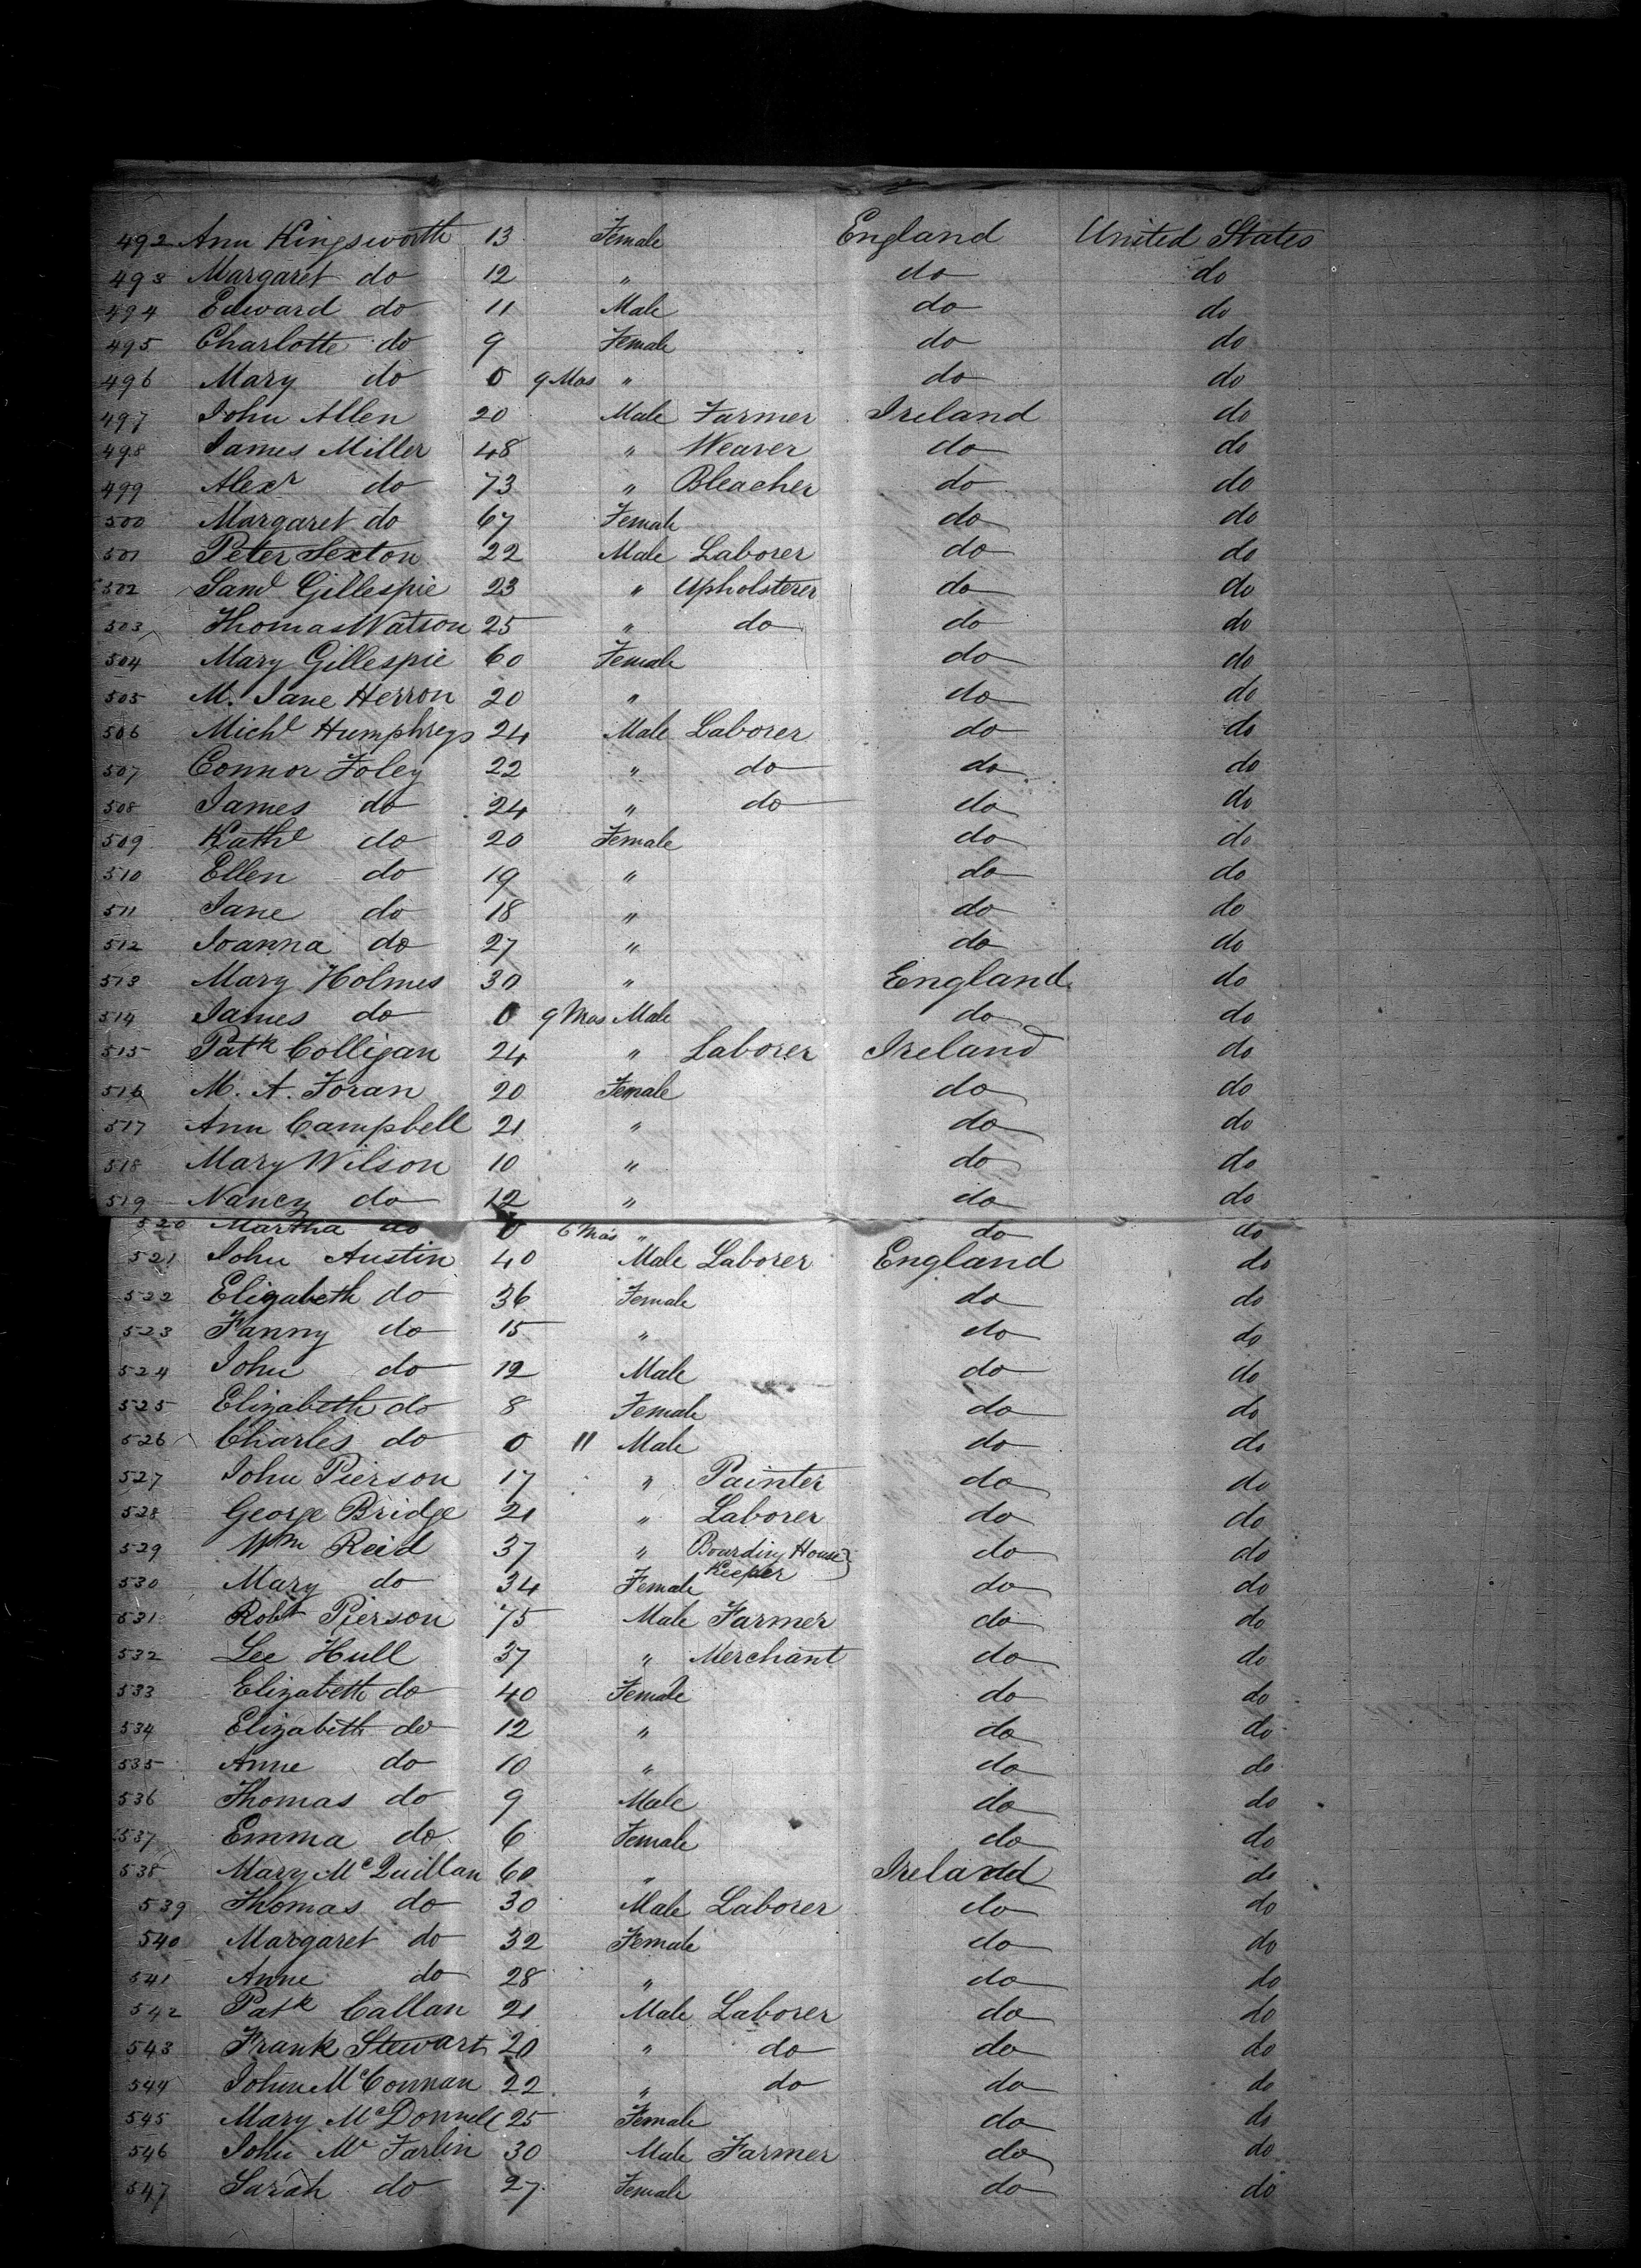 492 Ann Kingsworth 13 Female England United States
493 Margaret do 12 " do do
494 Edward do 11 Male do do
495 Charlotte do 9 Female do do
496 Mary do 0 9 Mos " do do
497 John Allen 20 Male Farmer Ireland do
498 James Miller 48 " Weaver do do
499 Alexr do 73 " Bleacher do do
500 Margaret do 67 Female do do
501 Peter Sexton 22 Male Laborer do do
502 Saml Gillespie 23 " Upholsterer do do
503 Thomas Watson 25 " do do do
504 Mary Gillespie 60 Female do do
505 M. Jane Herron 20 " do do
506 Michl Humphreys 24 Male Laborer do do
507 Connor Foley 22 " do do do
508 James do 24 " do do do
509 Kathe do 20 Female do do
510 Ellen do 19 " do do
511 Jane do 18 " do do
512 Joanna do 27 " do do
513 Mary Holmes 30 " England do
514 James do 0 9 Mos Male do do
515 Patk Colligan 24 " Laborer Ireland do
516 M. A. Foran 20 Female do do
517 Ann Campbell 21 " do do
518 Mary Wilson 10 " do do
519 Nancy do 12 " do do
520 Martha do 0 6 Mos " do do
521 John Austin 40 Male Laborer England do
522 Elizabeth do 36 Female do do
523 Fanny do 15 " do do
524 John do 12 Male do do
525 Elizabeth do 8 Female do do
526 Charles do 0 11 Male do do
527 John Pierson 17 " Painter do do
528 George Bridge 21 " Laborer do do
529 Wm Reid 37 " Boarding House Keeper do do
530 Mary do 34 Female do do
531 Robt Pierson 75 Male Farmer do do
532 Lee Hull 37 " Merchant do do
533 Elizabeth do 40 Female do do
534 Elizabeth do 12 " do do
535 Anne do 10 " do do
536 Thomas do 9 Male do do
537 Emma do 6 Female do do
538 Mary McQuillan 60 " Ireland do
539 Thomas do 30 Male Laborer do do
540 Margaret do 32 Female do do
541 Anne do 28 " do do
542 Patk Callan 21 Male Laborer do do
543 Frank Stewart 20 " do do do
544 John McConnan 22 " do do do
545 Mary McDonnell 25 Female do do
546 John Mc Farlin 30 Male Farmer do do
547 Sarah do 27 Female do do